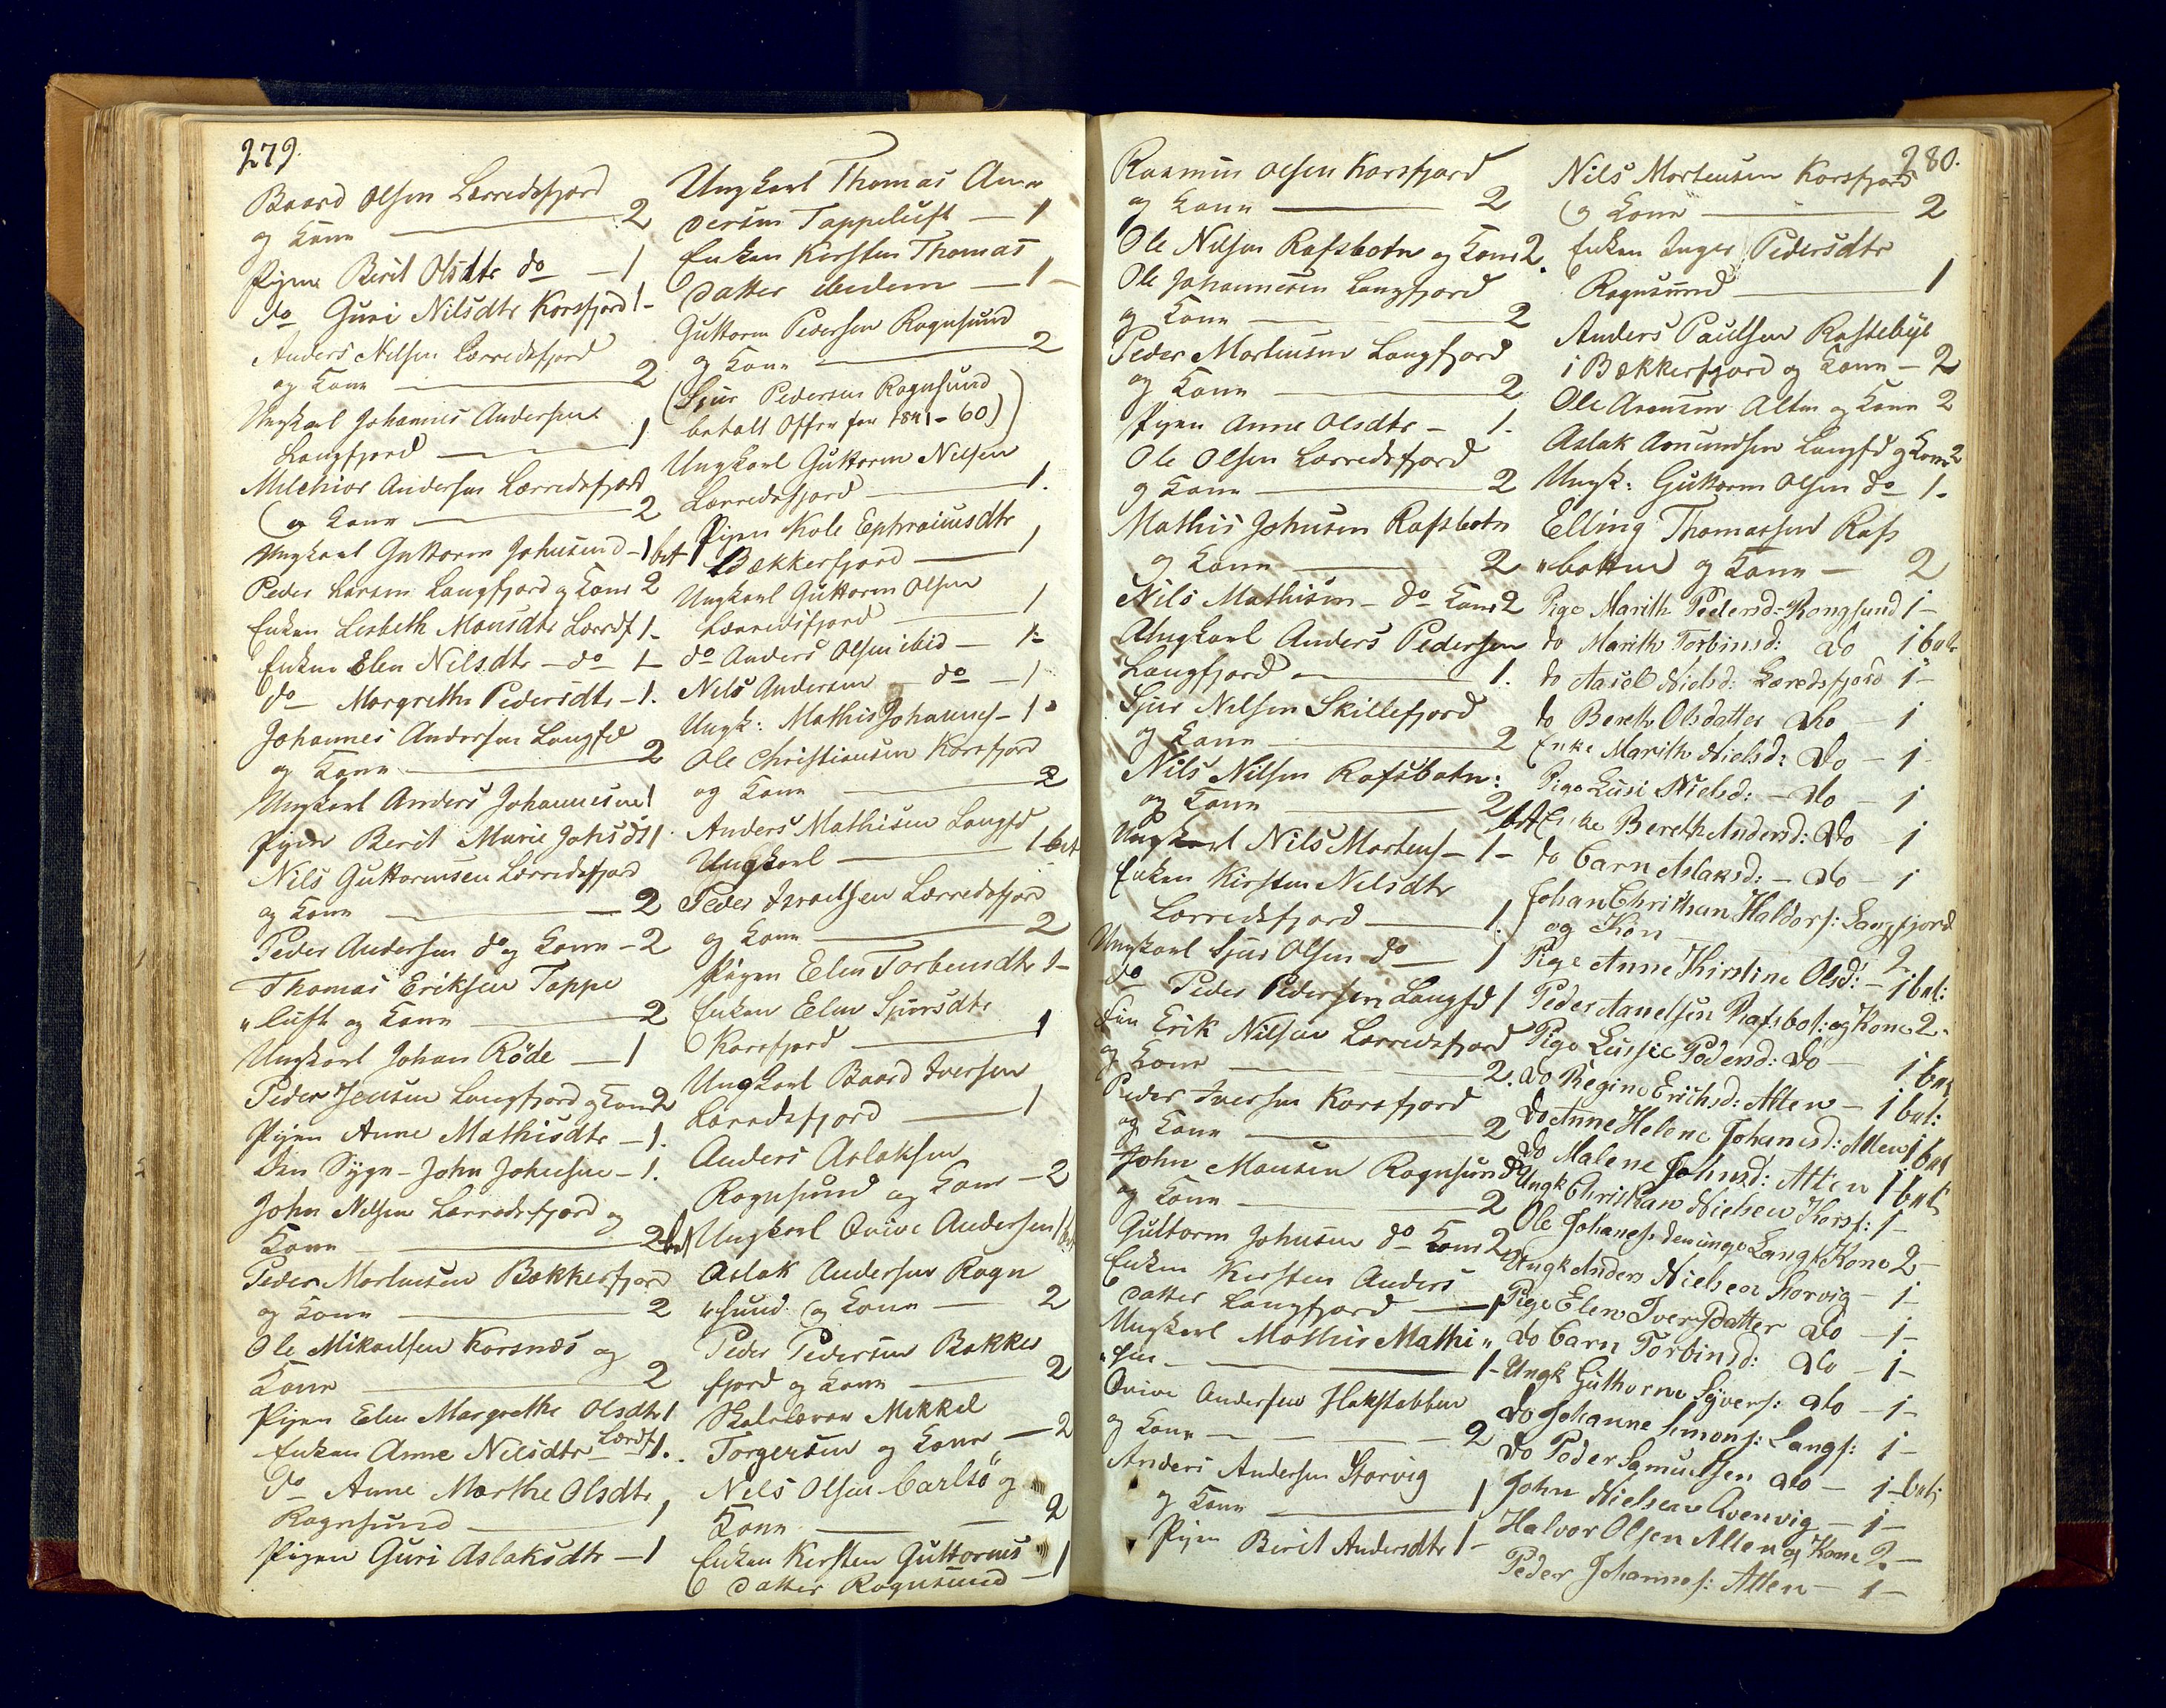 279.
Baard Olsen Lerredsfjord
og Kone 2
Pigen Berit Olsdtr do 1
do Guri Nilsdtr Korsfjord 1-
Anders Nilsen Lerredsfjord
og Kone 2
Ungkarl Johannes Andersen
Langfjord 1
Melchior Andersen Lerredsfjord
og Kone 2
Ungkarl Guttorm Johnsen - 1 bet
Peder Larsen Langfjord og Kone 2
Enken Lisbeth Monsdtr Lerrdf 1-
Enken Elen Nilsdtr - do - 1-
do Margrethe Pedersdtr - 1.
Johannes Andersen Langfd
og Kone 2
Ungkarl Anders Johannesen 1
Pigen Berit Marie Johsdt 1
Nils Guttormsen Lerredsfjord
og Kone 2
Peder Andersen do og Kone - 2
Thomas Eriksen Tappe
"luft og Kone 2
Ungkarl Johan Röde - 1
Peder Jensen Langfjord og Kone 2
Pigen Anne Mathisdtr - 1.
Den Syge - John Johnsen - 1.
John Nilsen Lerredsfjord og
Kone 2 bet
Peder Mortensen Bekkerfjord
og Kone 2
Ole Mikaelsen Korsnæs og
Kone 2
Pigen Elen Margrethe Olsdtr 1
Enken Anne Nilsdtr Lerdf 1.
do Anne Marthe Olsdtr
Rognsund 1
Pigen Guri Aslaksdtr - 1
Ungkarl Thomas An
dersen Tappeluft - 1
Enken Kirsten Thomas
datter ibidem - 1-
Guttorm Pedersen Rognsund
og Kone 2
(Sjur Pedersen Rognsund
betalt Offer for 1841-60)
Ungkarl Guttorm Nilsen
Lerredsfjord 1.
Pigen Kole Ephraimsdtr
Bekkerfjord 1
Ungkarl Guttorm Olsen
Lerredsfjord 1
do Anders Olsen ibid - 1-
Nils Andersen - do - 1
Ungk: Mathis Johannes - 1
Ole Christiansen Korsfjord
og Kone 2
Anders Mathisen Langfd
Ungkarl 1 bet
Peder Israelsen Lerredsfjord
og Kone 2
Pigen Elen Torbensdtr 1-
Enken Elen Sjursdtr
Korsfjord 1
Ungkarl Baard Iversen
Lerredsfjord 1
Anders Aslaksen
Rognsund og Kone - 2
Ungkarl Qvive Andersen 1 bet
Aslak Andersen Rogn
"sund og Kone 2
Peder Pedersen Bekker
fjord og Kone 2
Skolelærer Mikkel
Torgersen og Kone - 2
Nils Olsen Carlsö og
Kone 2
Enken Kirsten Guttorms
datter Rognsund 1
280.
Rasmus Olsen Korsfjord
og Kone 2
Ole Nilsen Rafsbotn og Kone 2.
Ole Johannesen Langfjord
og Kone 2
Peder Mortensen Langfjord
og Kone 2
Pigen Anne Olsdtr - 1.
Ole Olsen Lerredsfjord
og Kone 2
Mathis Johnsen Rafsbotn
og Kone 2
Nils Mathisen - do Kone 2
Ungkarl Anders Pedersen
Langfjord 1.
Sjur Nilsen Skillefjord
og Kone 2
Nils Nilsen Rafsbotn:
og Kone 2 bet
Ungkarl Nils Mortens - 1 -
Enken Kirsten Nilsdtr
Lerredsfjord 1.
Ungkarl Sjur Olsen do 1
do Peder Pedersen Langfd 1
Fin Erik Nilsen Lerredsfjord
og Kone 2.
Peder Iversen Korsfjord
og Kone 2
John Monsen Rognsund
og Kone 2
Guttorm Johnsen do Kone 2
Enken Kirsten Anders
datter Langfjord 1
Ungkarl Mathis Mathi "
"sen 1-
Qvive Andersen Hakstabben
og Kone 2
Anders Andersen Storvig
og Kone 1
Pigen Berit Andersdtr 1 -
Nils Mortensen Korsfjord
og Kone 2
Enken Inger Pedersdtr
Rognsund 1
Anders Paulsen Rastebye
i Bekkerfjord og Kone - 2
Ole Aronsen Alten og Kone 2
Aslak Amundsen Langfd og Kone 2
Ungk: Guttorm Olsen do 1-
Elling Thomassen Rafs
"botten og Kone - 2
Pige Marith Pedersd: Rongsund 1-
do Marith Torbinsd: do 1 bet
do Aasel Nielsd: Leredsfjord 1-
do Bereth Olsdatter do - 1
Enke Marith Nielsd: do - 1-
Pige Lusi Nielsd: - do - 1
Enke Bereth Andersd: do 1
do Carn Aslaksd: - do - 1
Johan Christian Haldors: Langfjord
og Kon 2
Pige Anne Kirstine Olsd: - 1 bet:
Peder Aanelsen Rafsbot: og Kone 2-
Pige Lussie Pedersd: do - 1 bet
do Regine Erichsd: Alten - 1 bet:
do Anne Helene Johanesd: Alten 1 bet
do Malene Johnsd: Alten 1 bet
Ungk Christian Nielsen Korsf: 1-
Ole Johanes. den unge Langf Kone 2-
Ungk Anders Nielsen Storvig - 1-
Pige Elen Iversdatter do - 1-
do Carn Torbinsd: do - 1-
Ungk Guthorm Syvers: do - 1-
do Johanne Simons: Langf: 1-
do Peder Samuelsen do - 1-bet:
John Nielsen Qvenvig - 1-
Halvor Olsen Alten og Kone 2-
Peder Johannes: Alten - 1-